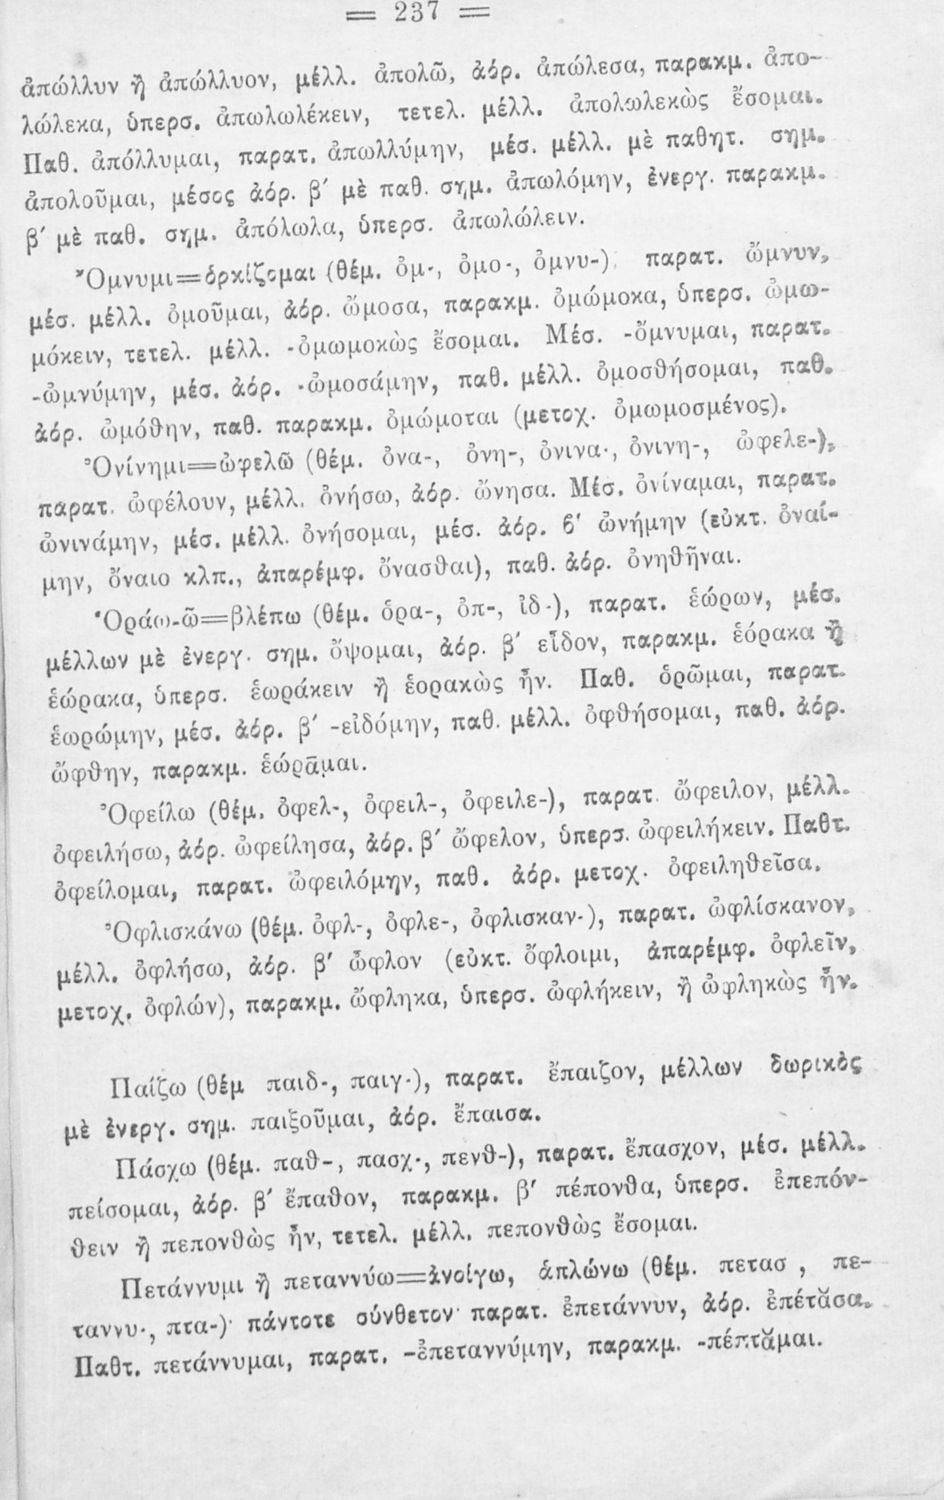 = 237 =
ἀπώλλυν ἢ ἀπώλλυον, μέλλ. ἀπολῶ, ἀόρ. ἀπώλεσα, παρακμ. ἀπο-
λώλεκα, ὑπερσ. ἀπωλωλέκειν, τετελ. μέλλ. ἀπολωλεκὼς ἔσομαι.
Παθ. ἀπόλλυμαι, παρατ. ἀπωλλύμην, μέσ. μέλλ. μὲ παθητ. σημ.
ἀπολοῦμαι, μέσος ἀόρ. β΄ μὲ παθ. σημ. ἀπωλόμην, ἐνεργ. παρακμ.
β΄ μὲ παθ. σημ. ἀπόλωλα, ὑπερσ. ἀπωλώλειν.
Ὄμνυμι=ὁρκίζομαι (θέμ. ὀμ-, ὀμο-, ὀμνυ-) παρατ. ὤμνυν,
μέσ. μέλλ. ὀμοῦμαι, ἀόρ. ὤμοσα, παρακμ. ὀμώμοκα, ὑπερσ. ὠμω-
μόκειν, τετελ. μέλλ. -ὀμωμοκὼς ἔσομαι. Μέσ. -ὄμνυμαι, παρατ.
-ὠμνύμην, μέσ. ἀόρ. -ὠμοσάμην, παθ. μέλλ. ὀμοσθήσομαι, παθ.
ἀόρ. ὠμόθην, παθ. παρακμ. ὀμώμοται (μετοχ. ὀμωμοσμένος).
Ὀνίνημι=ὠφελῶ (θέμ. ὀνα-, ὀνη-, ὀνινα-, ὀνινη-, ὠφελε-),
παρατ. ὠφέλουν, μέλλ. ὀνήσω, ἀόρ. ὤνησα. Μέσ. ὀνίναμαι, παρατ.
ὠνινάμην, μέσ. μέλλ. ὀνήσομαι, μέσ. ἀόρ. ϐ΄ ὠνήμην (εὐκτ. ὀναί-
μην, ὄναιο κλπ., ἀπαρέμφ. ὄνασθαι), παθ. ἀόρ. ὀνηθῆναι.
Ὁράω-ῶ=βλέπω (θέμ. ὁρα-, ὀπ-, ἰδ-), παρατ. ἑώρων, μέσ.
μέλλων μὲ ἐνεργ. σημ. ὄψομαι, ἀόρ. β΄ εἶδον, παρακμ. ἑόρακα ἢ
ἑώρακα, ὑπερσ. ἑωράκειν ἢ ἑορακὼς ἦν. Παθ. ὁρῶμαι, παρατ.
ἑωρώμην, μέσ. ἀόρ. β΄ -εἰδόμην, παθ. μέλλ. ὀφθήσομαι, παθ. ἀόρ.
ὤφθην, παρακμ. ἑώρᾱμαι.
Ὀφείλω (θέμ. ὀφελ-, ὀφειλ-, ὀφειλε-), παρατ. ὤφειλον, μέλλ.
ὀφειλήσω, ἀόρ. ὠφείλησα, ἀόρ. β΄ ὤφελον, ὑπερσ. ὠφειλήκειν. Παθτ.
ὀφείλομαι, παρατ. ὠφειλόμην, παθ. ἀόρ. μετοχ. ὀφειληθεῖσα.
Ὀφλισκάνω (θέμ. ὀφλ-, ὀφλε-, ὀφλισκαν-), παρατ. ὠφλίσκανον,
μέλλ. ὀφλήσω, ἀόρ. β΄ ὦφλον (εὐκτ. ὄφλοιμι, ἀπαρέμφ. ὀφλεῖν,
μετοχ. ὀφλών), παρακμ. ὤφληκα, ὑπερσ. ὠφλήκειν, ἢ ὠφληκὼς ἦν.
Παίζω (θέμ παιδ-, παιγ-), παρατ. ἔπαιζον, μέλλων δωρικὸς
μὲ ἐνεργ. σημ. παιξοῦμαι, ἀόρ. ἔπαισα.
Πάσχω (θέμ. παθ-, πασχ-, πενθ-), παρατ. ἔπασχον, μέσ. μέλλ.
πείσομαι, ἀόρ. β΄ ἔπαθον, παρακμ. β΄ πέπονθα, ὑπερσ. ἐπεπόν-
θειν ἢ πεπονθὼς ἦν, τετελ. μέλλ. πεπονθὼς ἔσομαι.
Πετάννυμι ἢ πεταννύω=ἀνοίγω, ἁπλώνω (θέμ. πετασ , πε-
ταννυ-, πτα-)· πάντοτε σύνθετον· παρατ. ἐπετάννυν, ἀόρ. ἐπέτᾰσα.
Παθτ. πετάννυμαι, παρατ. -ἐπεταννύμην, παρακμ. -πέπτᾰμαι.